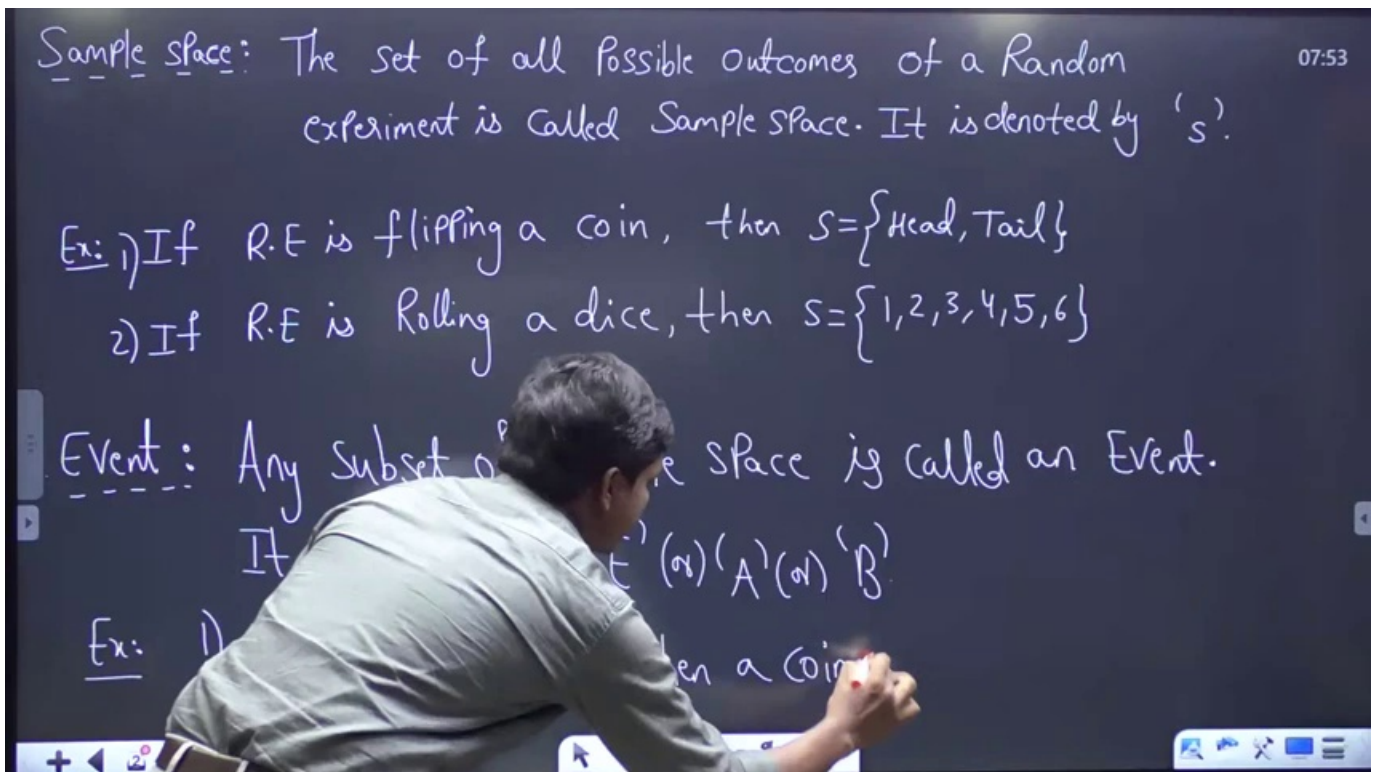 Sample space: The set of all Possible outcomes of a Random
07:53
experiment is called Sample space. It is denoted by 's'.
Ex: 1) If R.E is flipping a coin, then S={Head, Tail}
2) If R.E is Rolling a dice, then S={1,2,3,4,5,6}
Event: Any subset space is called an Event.
It (or) 'A' (or) 'B'
Ex: 1) a